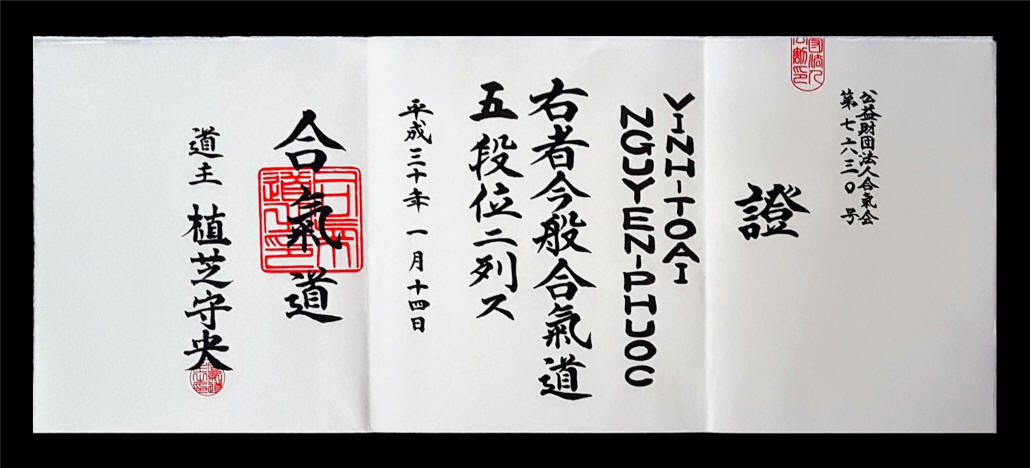 公益財団法人合氣会
第七六三〇号
證
VINH-TOAI
NGUYEN-PHUOC
右者今般合氣道
五段位ニ列ス
平成三十年一月十四日
合氣道
道主 植芝守央